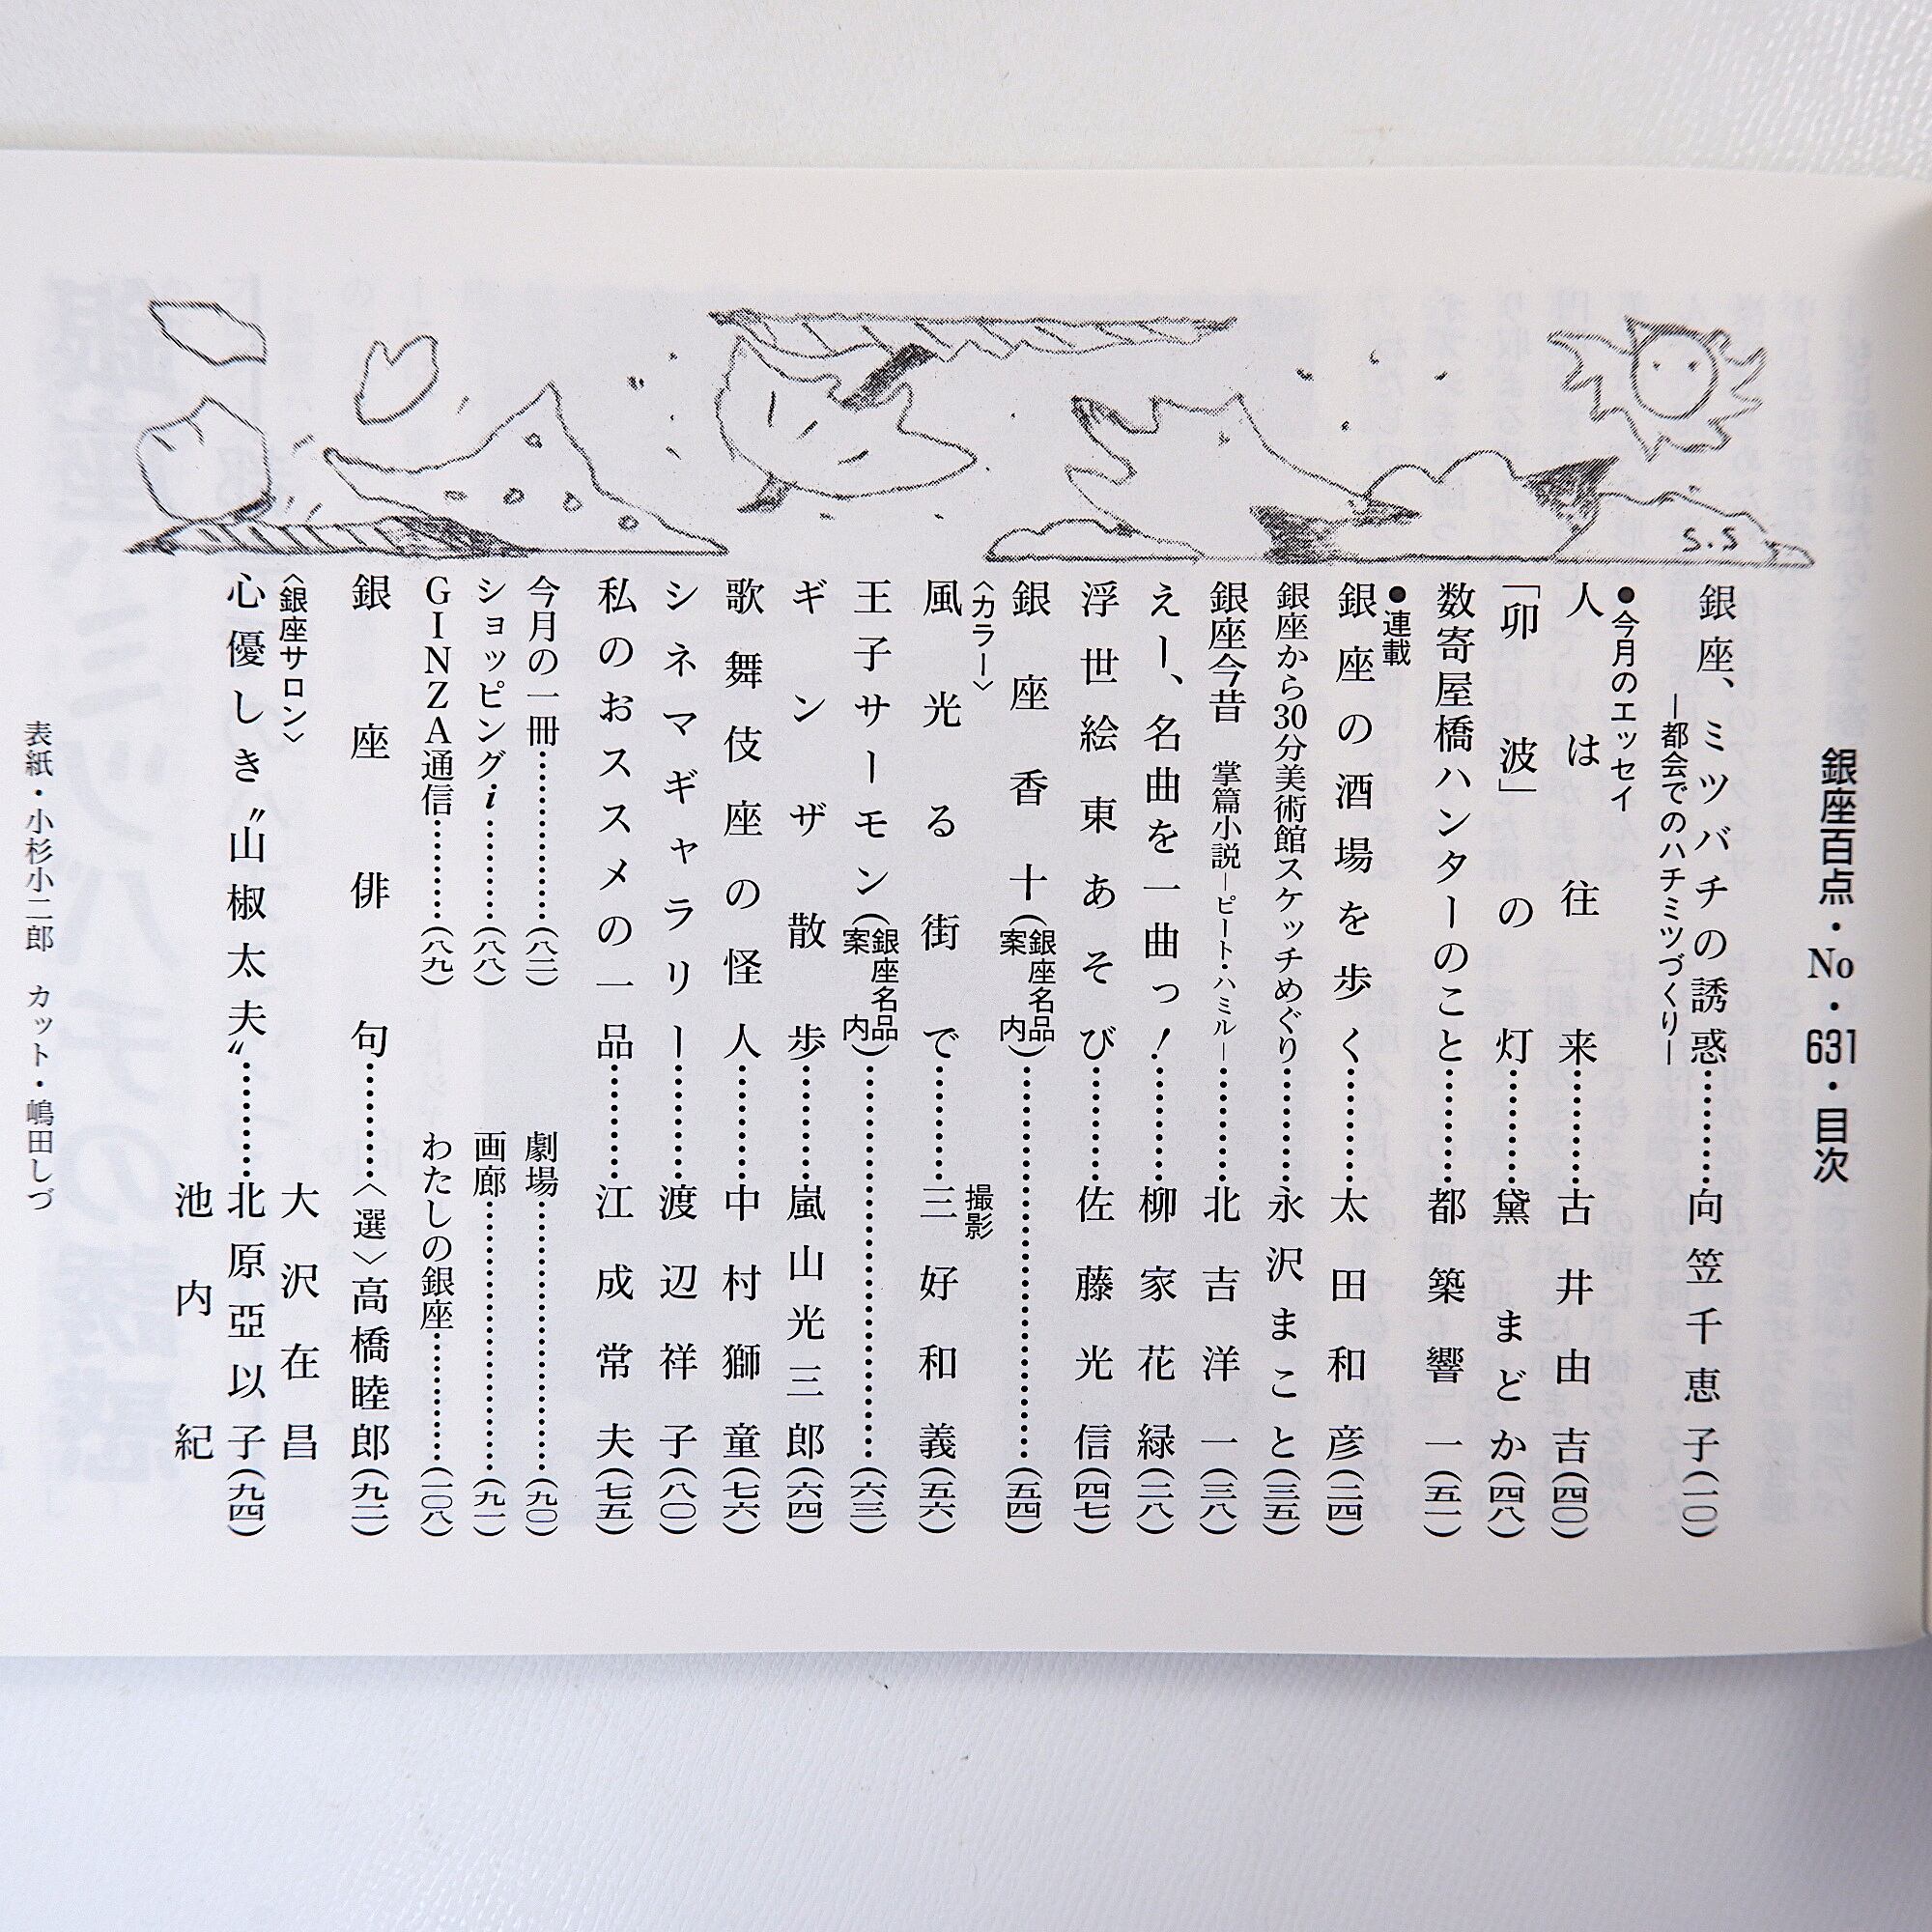 銀座百点・No・631・目次
銀座、ミツバチの誘惑…………向笠千恵子(一〇)
―都会でのハチミツづくり―
●今月のエッセイ
人は往来…………古井由吉(四〇)
「卯波」の灯…………黛まどか(四八)
数寄屋橋ハンターのこと…………都築響一(五一)
●連載
銀座の酒場を歩く…………太田和彦(二四)
銀座から30分美術館スケッチめぐり…………永沢まこと(三五)
銀座今昔 掌篇小説―ピート・ハミル―…………北吉洋一(三八)
えー、名曲を一曲っ!…………柳家花緑(二八)
浮世絵東あそび…………佐藤光信(四七)
銀座香十(銀座名品案内)…………(五四)
〈カラー〉
風光る街で…………撮影 三好和義(五六)
王子サーモン(銀座名品案内)…………(六三)
ギンザ散歩…………嵐山光三郎(六四)
歌舞伎座の怪人…………中村獅童(七六)
シネマギャラリー…………渡辺祥子(八〇)
私のおススメの一品…………江成常夫(七五)
今月の一冊…………(八二)
劇場…………(九〇)
ショッピングi…………(八八)
画廊…………(九一)
GINZA通信…………(八九)
わたしの銀座…………(一〇八)
銀座俳句…………〈選〉高橋睦郎(九二)
〈銀座サロン〉
心優しき〝山椒太夫〟…………
大沢在昌
北原亞以子(九四)
池内紀
表紙・小杉小二郎 カット・嶋田しづ
S.S